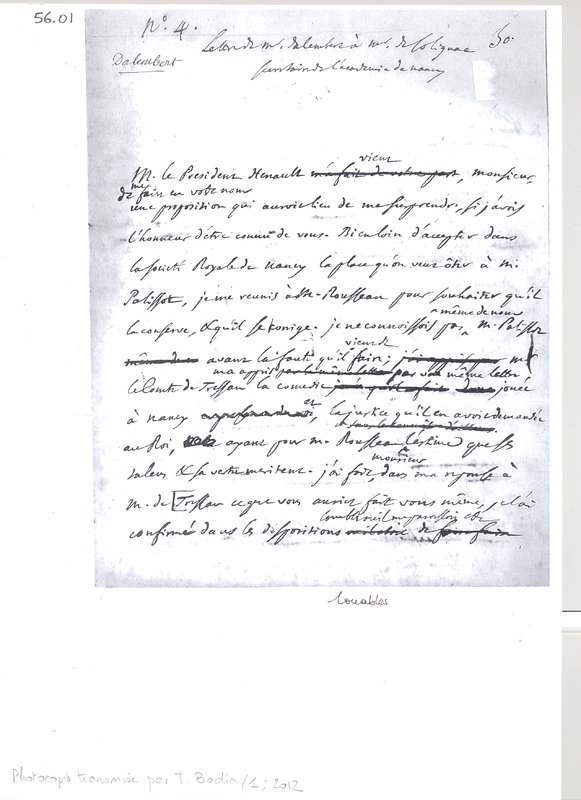 56.01
N.° 4.
50.
Lettre de m. dalembert à m. de Solignac
Dalembert
secretaire de l'academie de nancy
vient
M. le President Henault m'a fait de votre part, monsieur,
de me faire en votre nom
une proposition qui auroit lieu de me surprendre, si j'avois
l'honneur d'être connu de vous. Bien loin d'accepter dans
la société Royale de nancy la place qu'on veut ôter à m.
Palissot, je me reunis à M. Rousseau pour souhaiter qu'il
la conserve, & qu'il se corrige. je ne connoissois pas même de nom m. Palissot
avant la faute qu'il vient de faire; m.
m'a appris par la même lettre
le Comte de Tressan la comedie jouée
à nancy et la justice qu'il en avoit demandée
au Roi, ayant pour m. Rousseau l'estime que ses
talens & sa vertu meritent. j'ai fait, monsieur, dans ma reponse à
m. de Tressan ce que vous auriez fait vous même, je l'ai
confirmé dans les dispositions louables où il me paroissoit être
louables
Photocopie transmise par T. Bodin /1; 2012